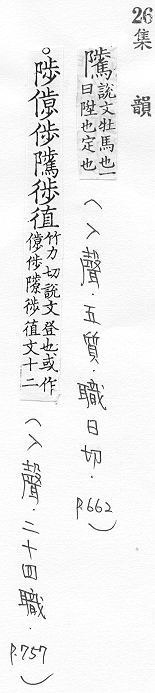 26集 韻
騭 說文牡馬也一
曰陞也定也
(入聲．五質．職日切．P.662)
。陟隲徏徝 竹力切說文登也或作
隲徏徝文十二
(入聲．二十四職．P.757)